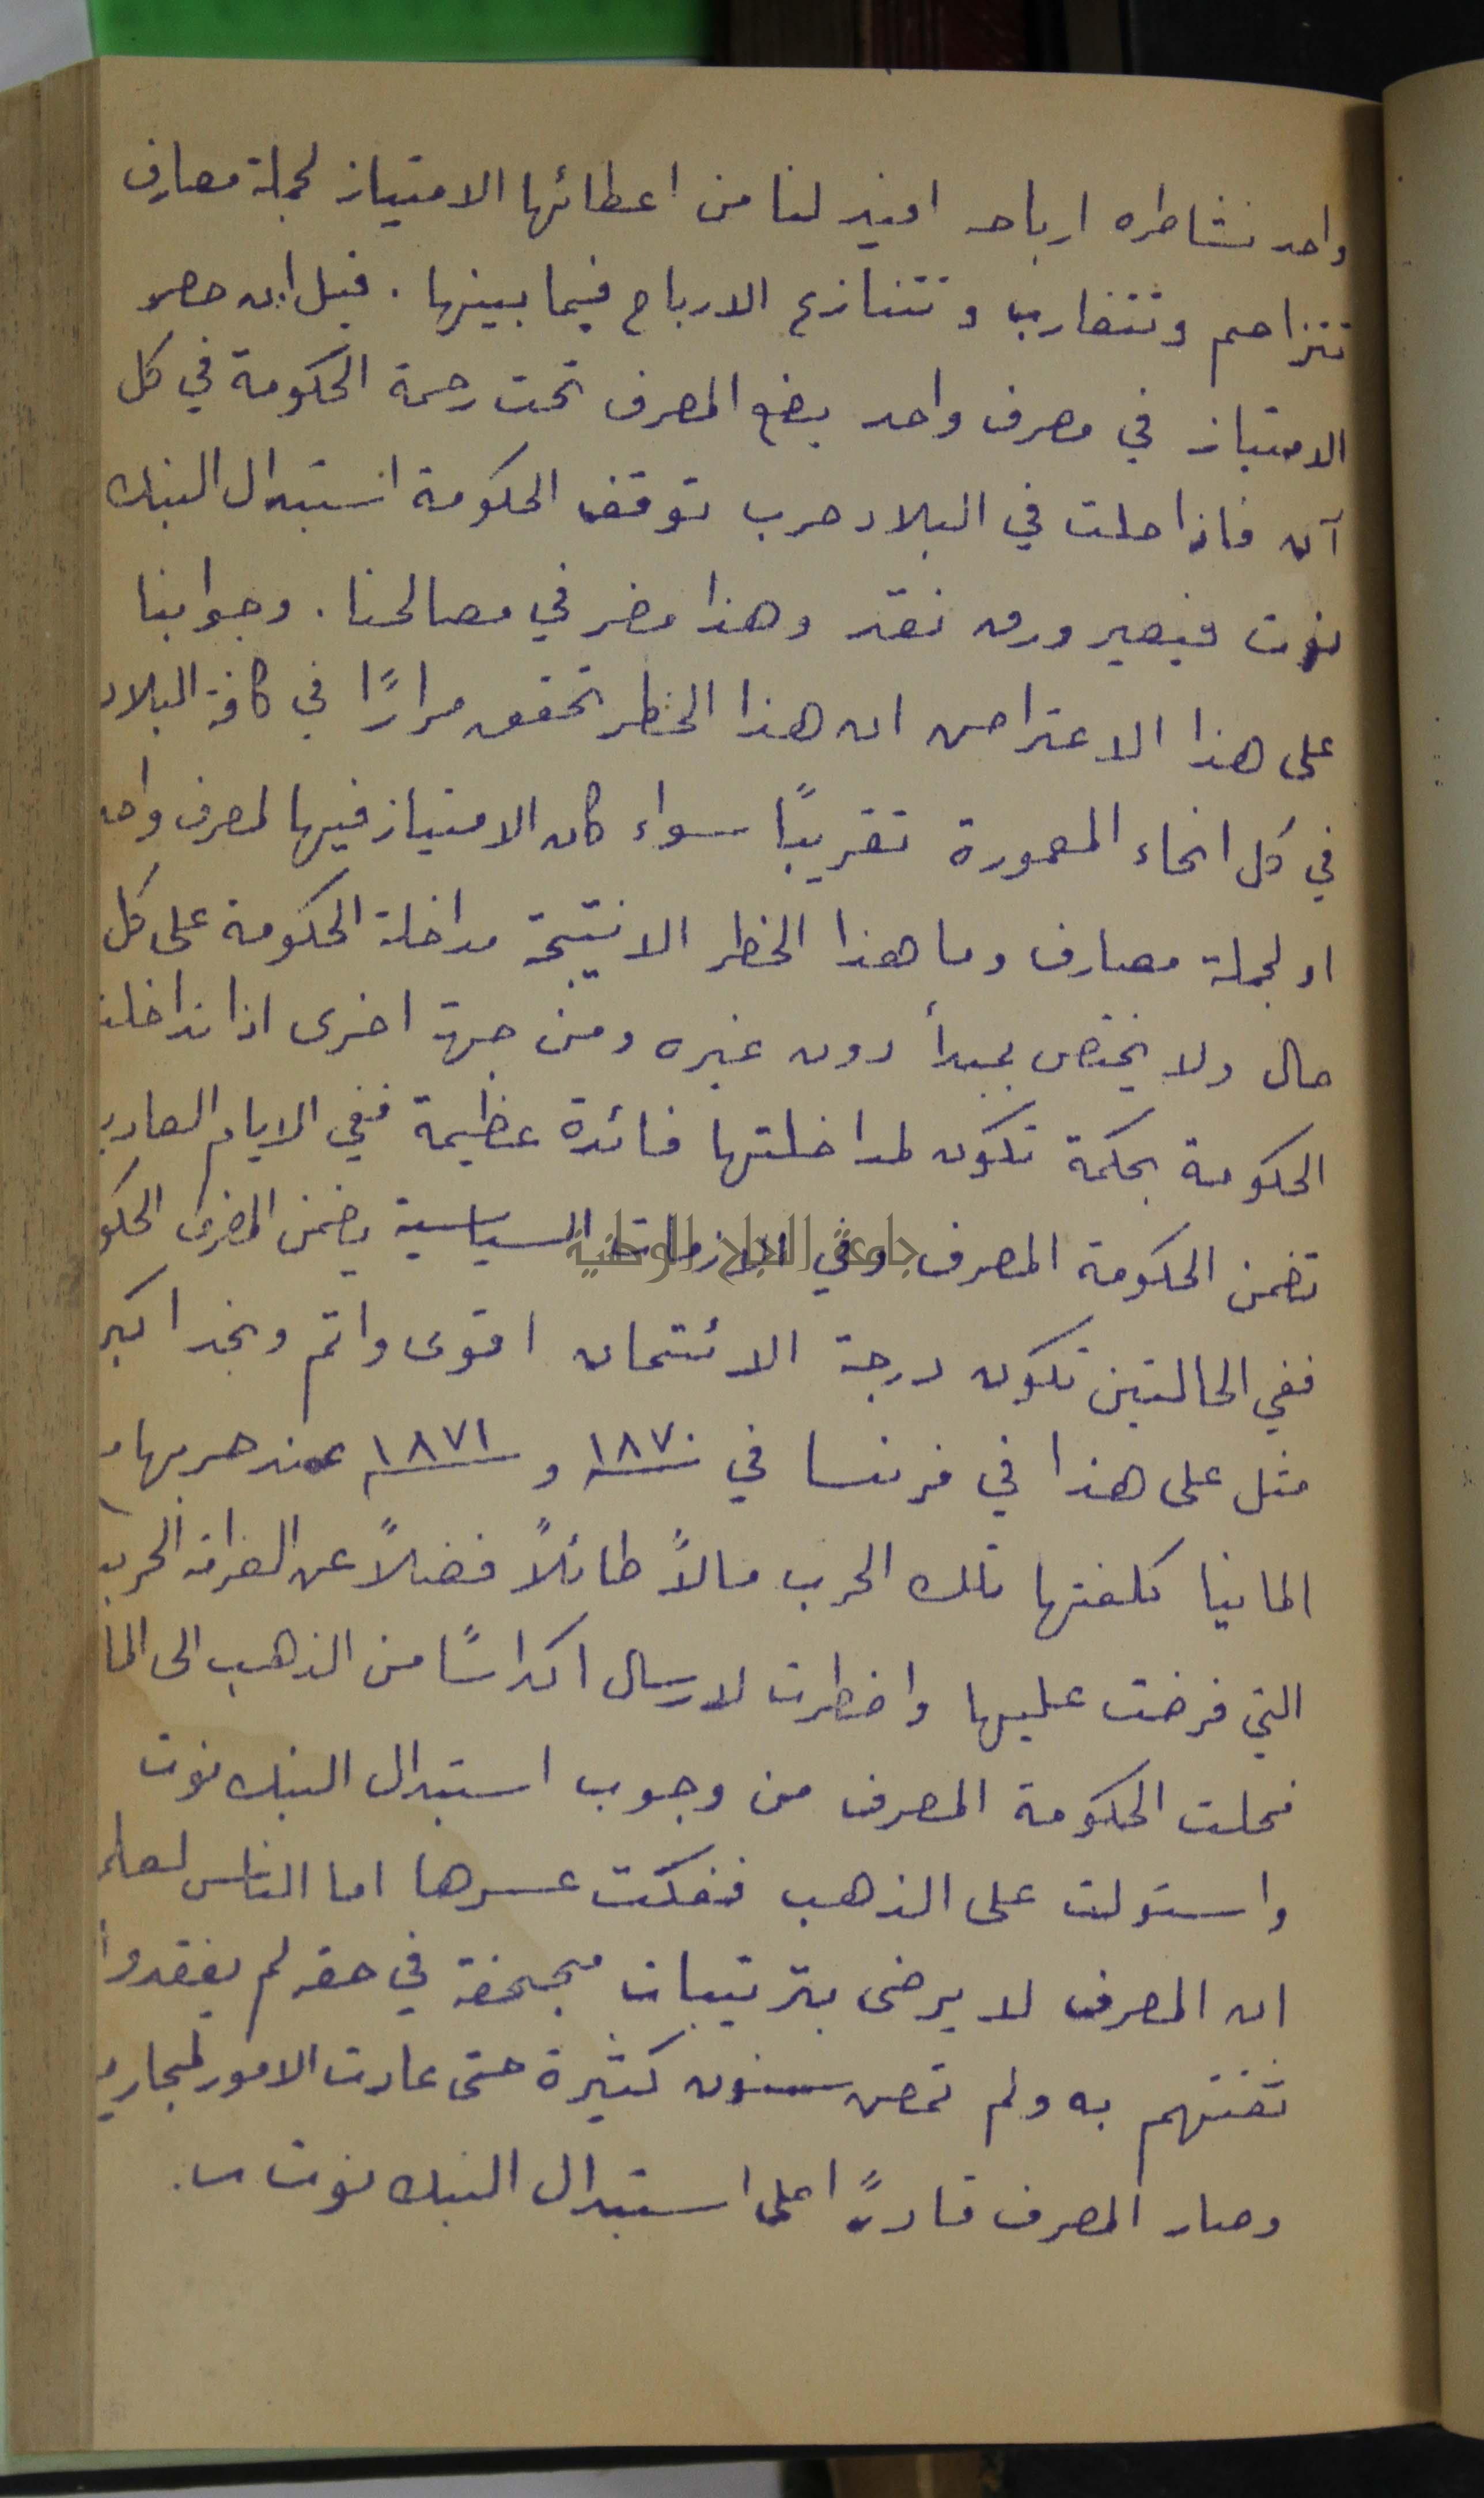 واحد نشاطره ارباحه افيد لنا من اعطائها الامتياز لجملة مصارف
تتزاحم وتتضارب وتتنازع الارباح فيما بينها. قيل ان حصر
الامتياز في مصرف واحد يضع المصرف تحت رحمة الحكومة في كل
آن فاذا حلت في البلاد حرب توقف الحكومة استبدال البنك
نوت فيصير ورق نقد وهذا مضر في مصالحنا. وجوابنا
على هذا الاعتراض ان هذا الخطر تحقق مرارًا في كافة البلاد
في كل انحاء المعمورة تقريبًا سواء كان الامتياز فيها لمصرف واحد
او لجملة مصارف وما هذا الخطر الا نتيجة مداخلة الحكومة على كل
حال ولا يختص بمبدأ دون غيره ومن جهة اخرى اذا تداخلت
الحكومة بحكمة تكون لمداخلتها فائدة عظيمة ففي الايام العادية
تضمن الحكومة المصرف وفي الازمات السياسية يضمن المصرف الحكو
جامعة النجاح الوطنية
ففي الحالتين تكون درجة الائتمان اقوى واتم ونجد اكبر
مثل على هذا في فرنسا في ١٨٧٠ و ١٨٧١ عند حربها
المانيا كلفتها تلك الحرب مالاً طائلاً فضلاً عن الغرامة الحربية
التي فرضت عليها واضطرت لارسال اكداسًا من الذهب الى الما
فحلت الحكومة المصرف من وجوب استبدال البنك نوت
واستولت على الذهب ففكت عسرها اما الناس لعلم
ان المصرف لا يرضى بترتيبات مجحفة في حقه لم يفقدوا
ثقتهم به ولم تمض سنون كثيرة حتى عادت الامور لمجاريها
وصار المصرف قادرًا على استبدال البنك نوت